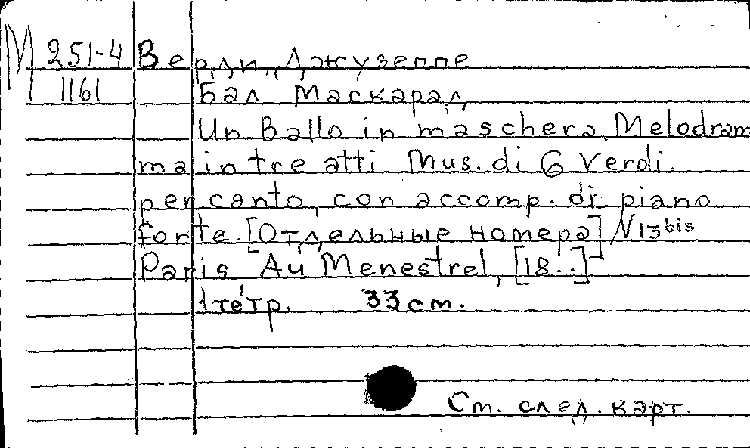 М 251-4 Верди, Джузеппе
1161 Бал Маскарад
Un Ballo in maschera. Melodram
ma in tre atti Mus. di G Verdi.
per canto, con accomp. di piano
forte. [Отдельные номера] N 13 bis
Paris Au Menestrel, [18..]
1 тетр. 33 cm.
См. след. карт.